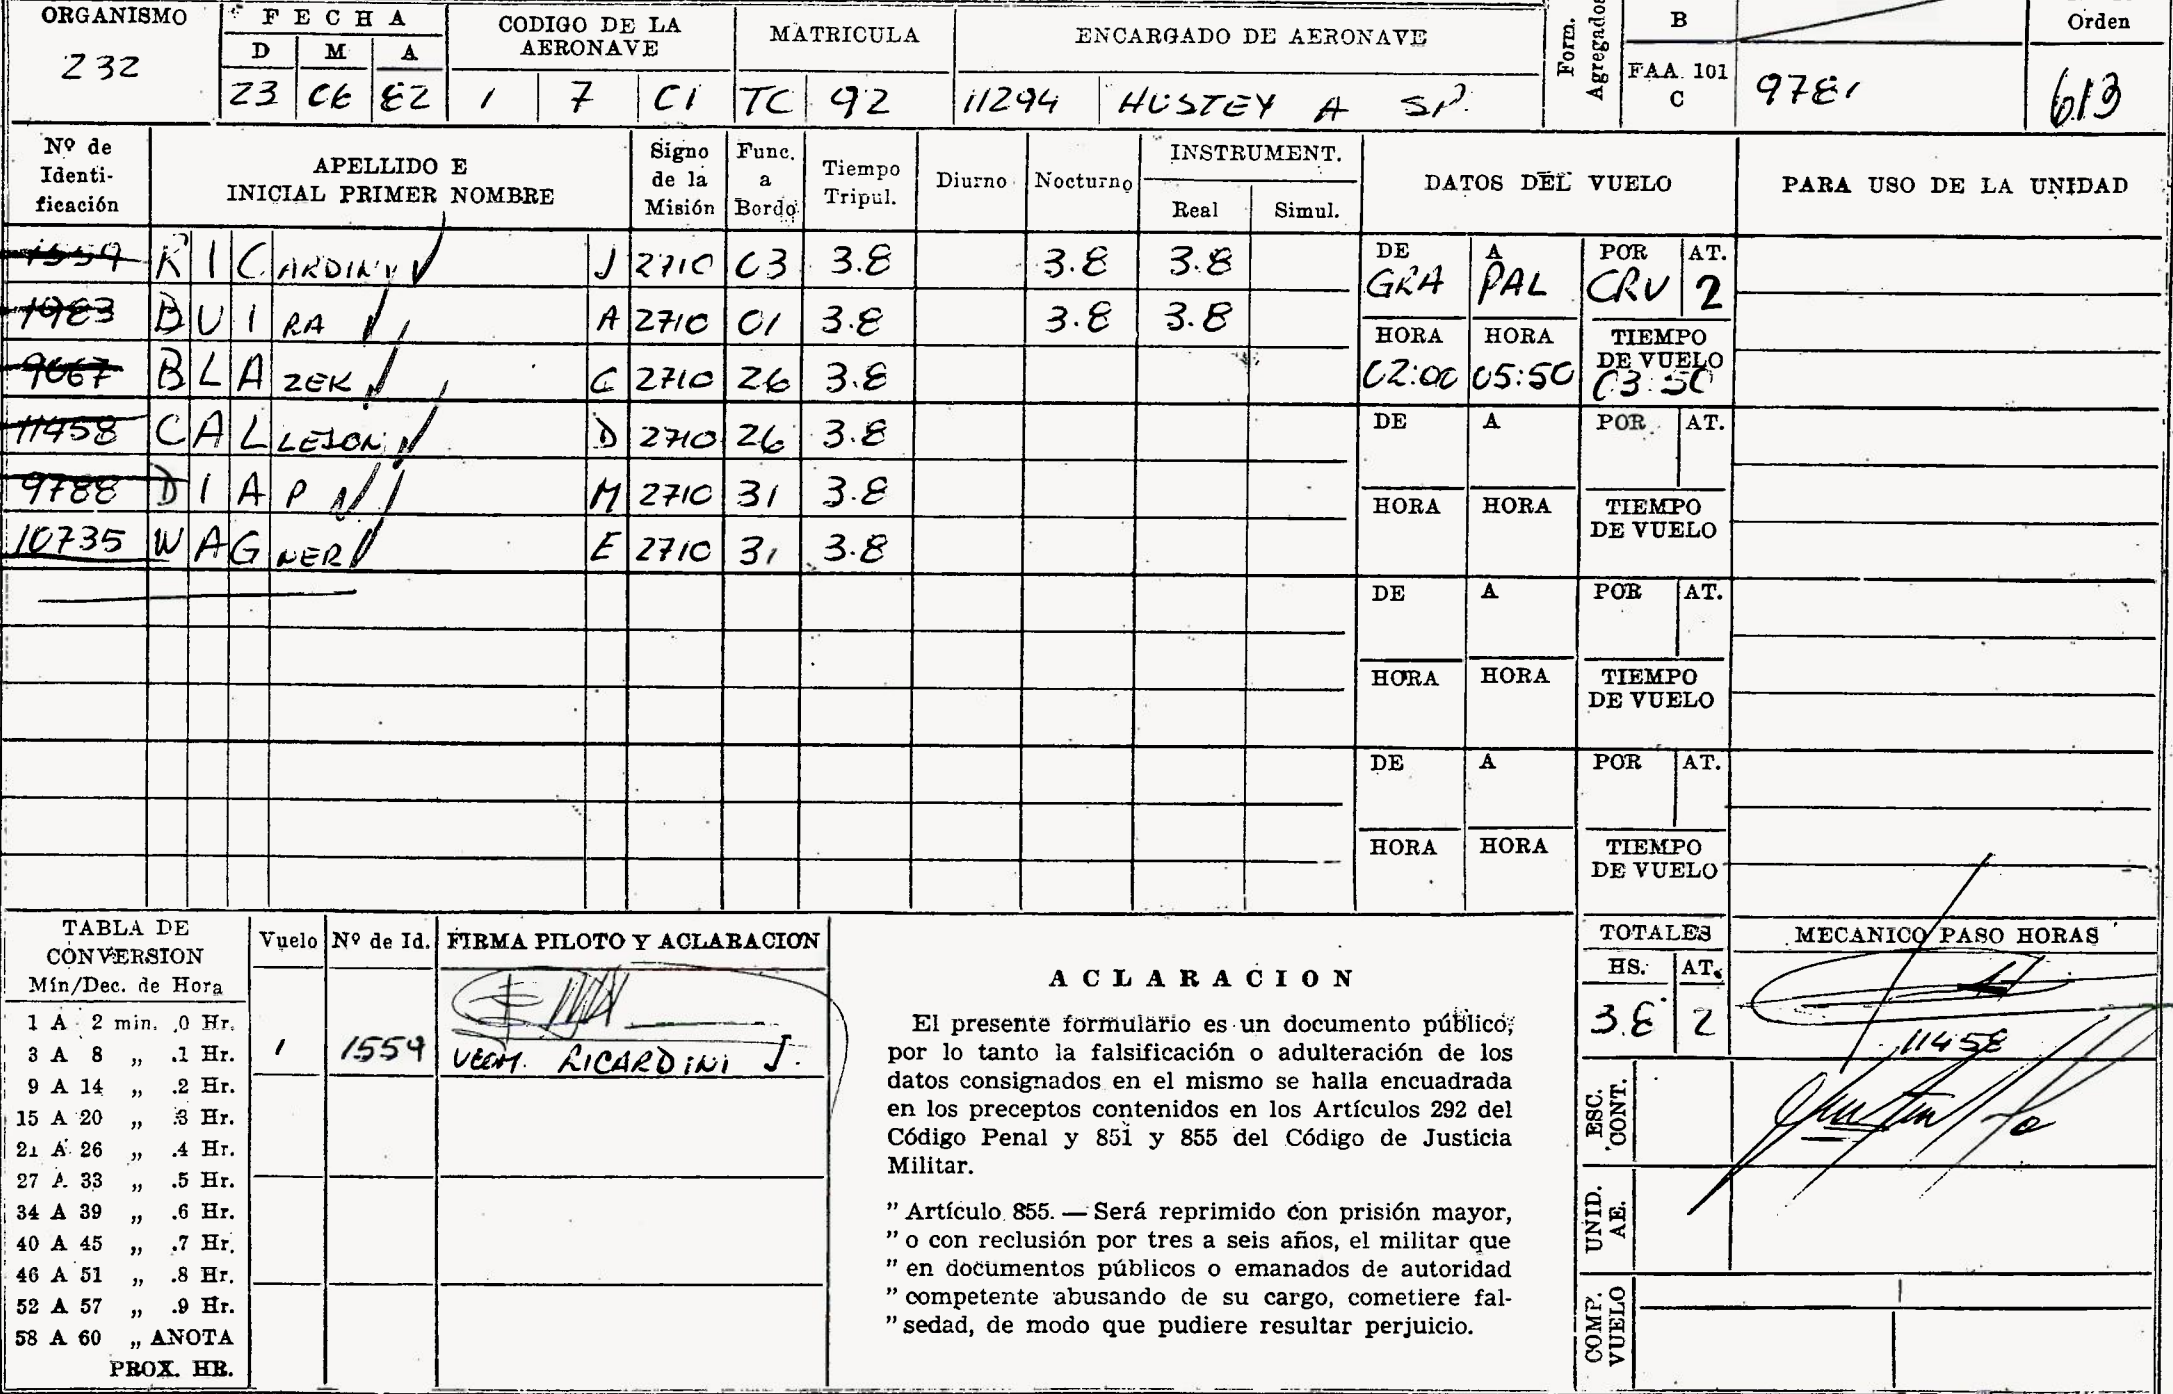 ORGANISMO F E C H A CODIGO DE LA AERONAVE MATRICULA ENCARGADO DE AERONAVE Form. Agregados B Orden
D M A FAA. 101 C
232 23 06 82 1 7 C1 TC 92 11294 HUSTEY A SP. 9781 613
Nº de Identificación APELLIDO E INICIAL PRIMER NOMBRE Signo de la Misión Func. a Bordo Tiempo Tripul. Diurno Nocturno INSTRUMENT. DATOS DEL VUELO PARA USO DE LA UNIDAD
Real Simul.
1559 RICARDINI J 2710 03 3.8 3.8 3.8
1983 BUIRA A 2710 01 3.8 3.8 3.8
9667 BLAZEK C 2710 26 3.8
11458 CALLEJON D 2710 26 3.8
9788 DIAP M 2710 31 3.8
10735 WAGNER E 2710 31 3.8
DE A POR AT.
GRA PAL CRU 2
HORA HORA TIEMPO DE VUELO
02:00 05:50 03:50
DE A POR AT.
HORA HORA TIEMPO DE VUELO
DE A POR AT.
HORA HORA TIEMPO DE VUELO
DE A POR AT.
HORA HORA TIEMPO DE VUELO
TABLA DE
CONVERSION
Mín/Dec. de Hora
1 A 2 min. .0 Hr.
3 A 8 „ .1 Hr.
9 A 14 „ .2 Hr.
15 A 20 „ .3 Hr.
21 A 26 „ .4 Hr.
27 A 33 „ .5 Hr.
34 A 39 „ .6 Hr.
40 A 45 „ .7 Hr.
46 A 51 „ .8 Hr.
52 A 57 „ .9 Hr.
58 A 60 „ ANOTA
PROX. HR.
Vuelo Nº de Id. FIRMA PILOTO Y ACLARACION
1 1559 RICARDINI J.
A C L A R A C I O N
El presente formulario es un documento público,
por lo tanto la falsificación o adulteración de los
datos consignados en el mismo se halla encuadrada
en los preceptos contenidos en los Artículos 292 del
Código Penal y 851 y 855 del Código de Justicia
Militar.
" Artículo 855. — Será reprimido con prisión mayor,
" o con reclusión por tres a seis años, el militar que
" en documentos públicos o emanados de autoridad
" competente abusando de su cargo, cometiere fal-
" sedad, de modo que pudiere resultar perjuicio.
TOTALES MECANICO PASO HORAS
HS. AT.
3.8 2
11458
ESC. CONT.
UNID. AE.
COMP. VUELO